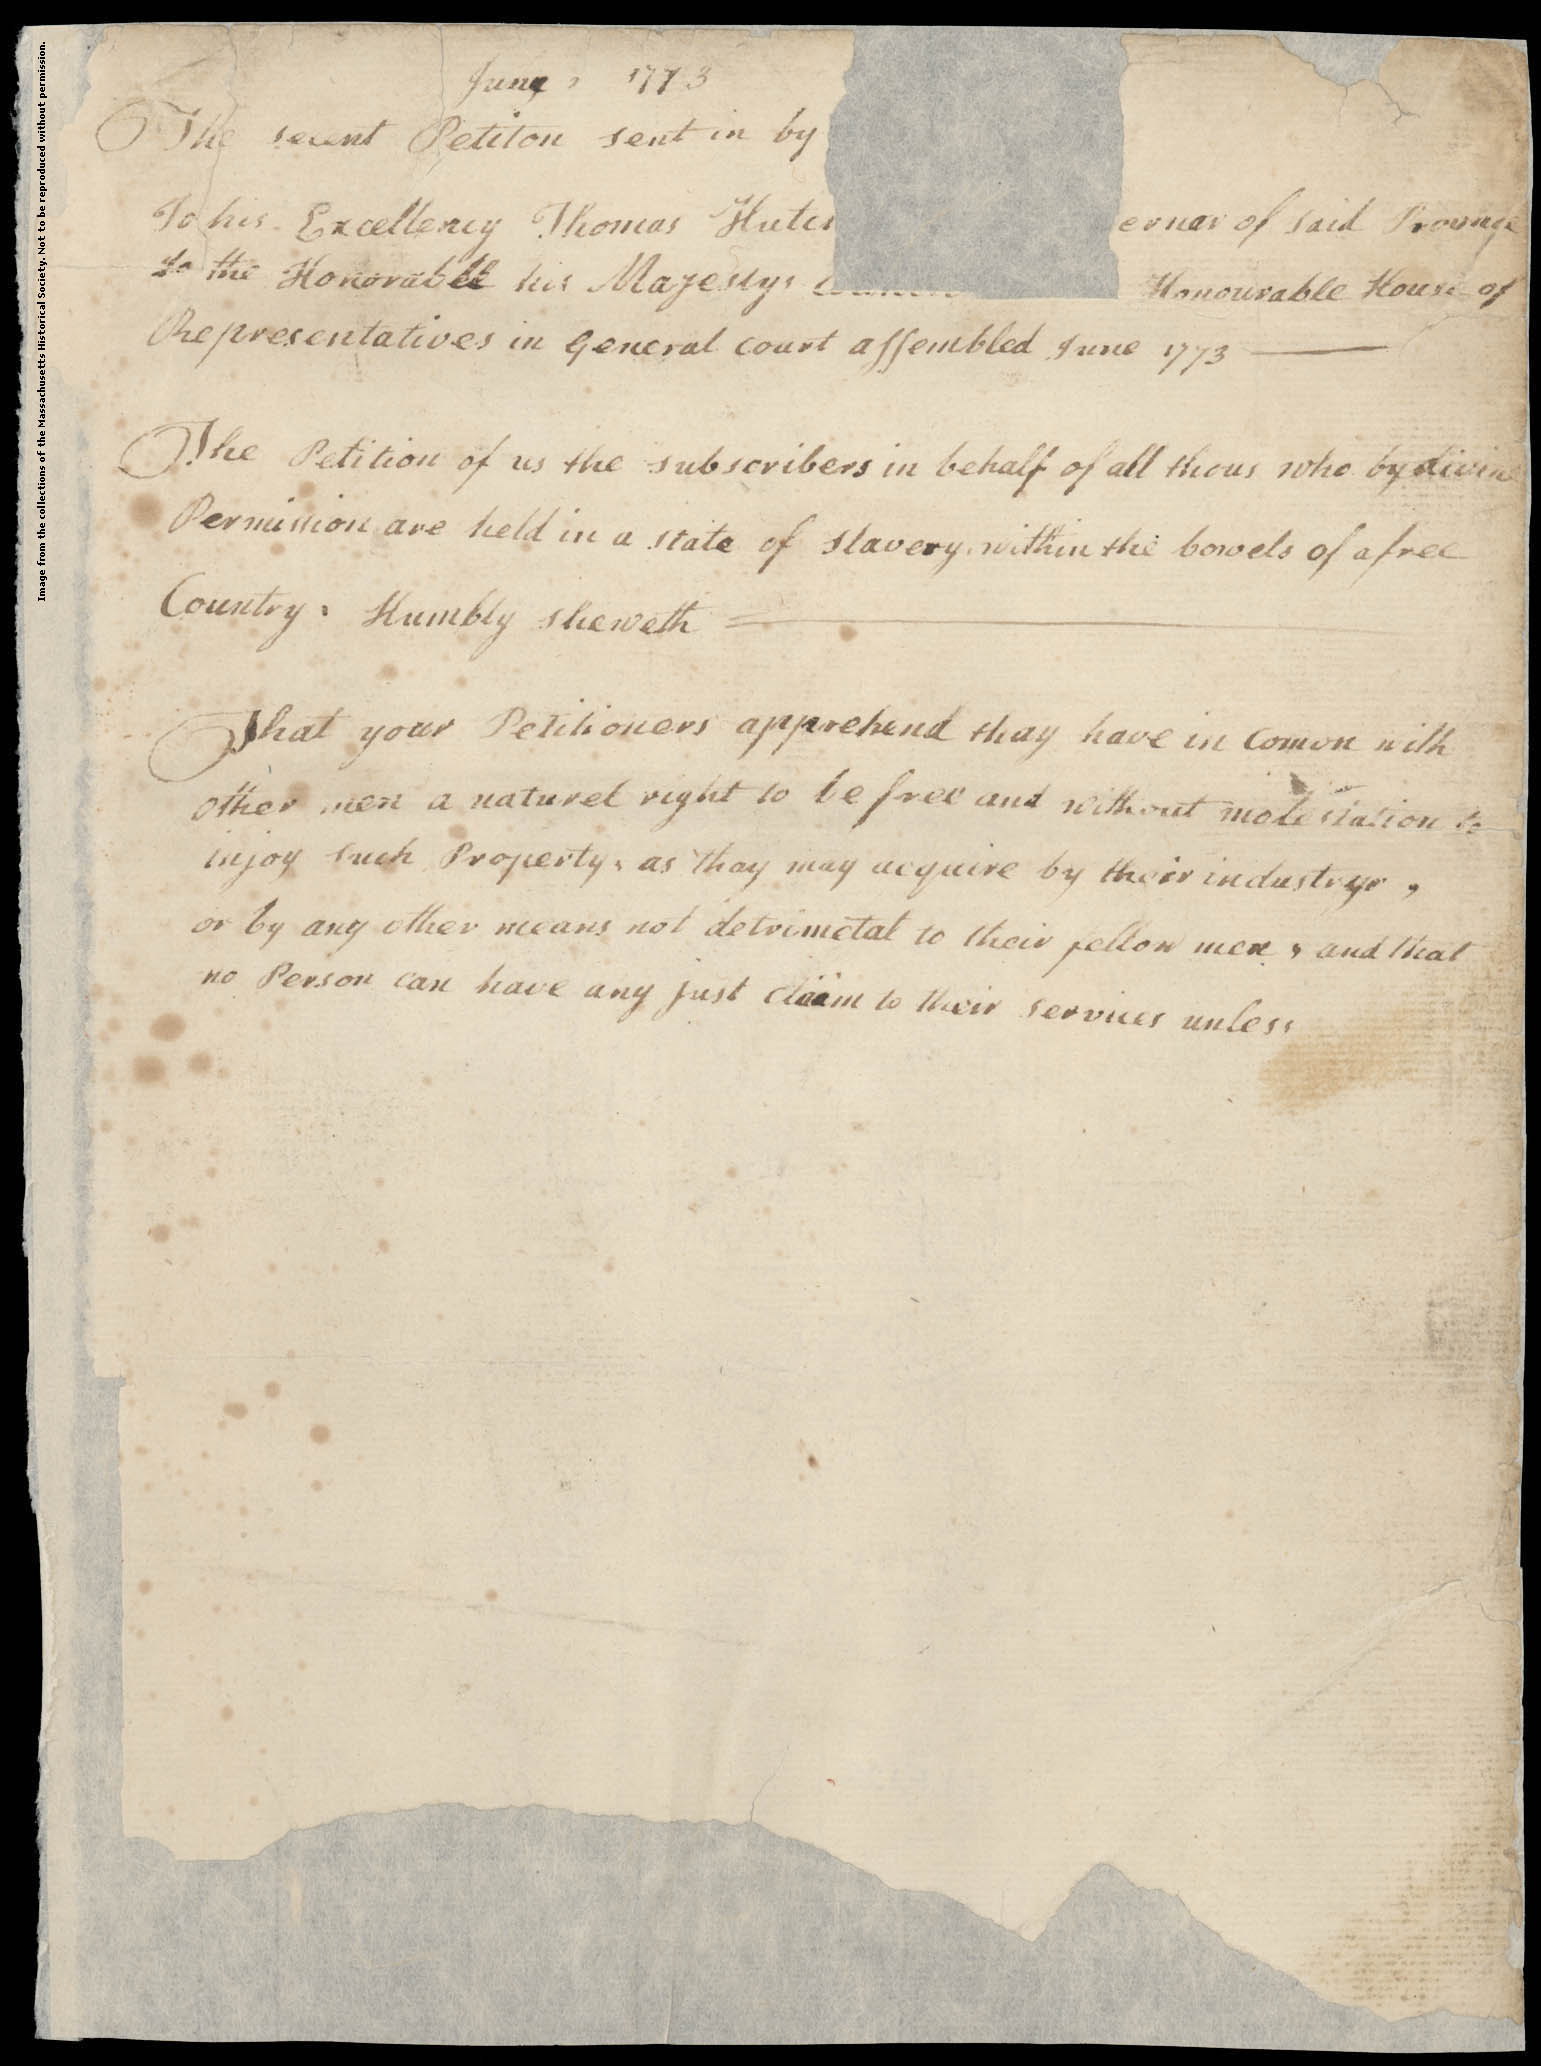 Image from the collections of the Massachusetts Historical Society. Not to be reproduced without permission.
June 1773
The Petiton sent in by
To his Excellency Thomas Hutc ernar of said Province
To the Honorable his Majestys Honourable House of
Representatives in General court assembled June 1773
The Petition of us the subscribers in behalf of all thous who by divine
Permission are held in a state of slavery within the bowels of a free
Country. Humbly sheweth
That your Petitioners apprehend thay have in comon with
other men a naturel right to be free and without molestation to
injoy such Property, as thay may acquire by their industry,
or by any other means not detrimetal to their fellow men, and that
no Person can have any just claim to their services unless